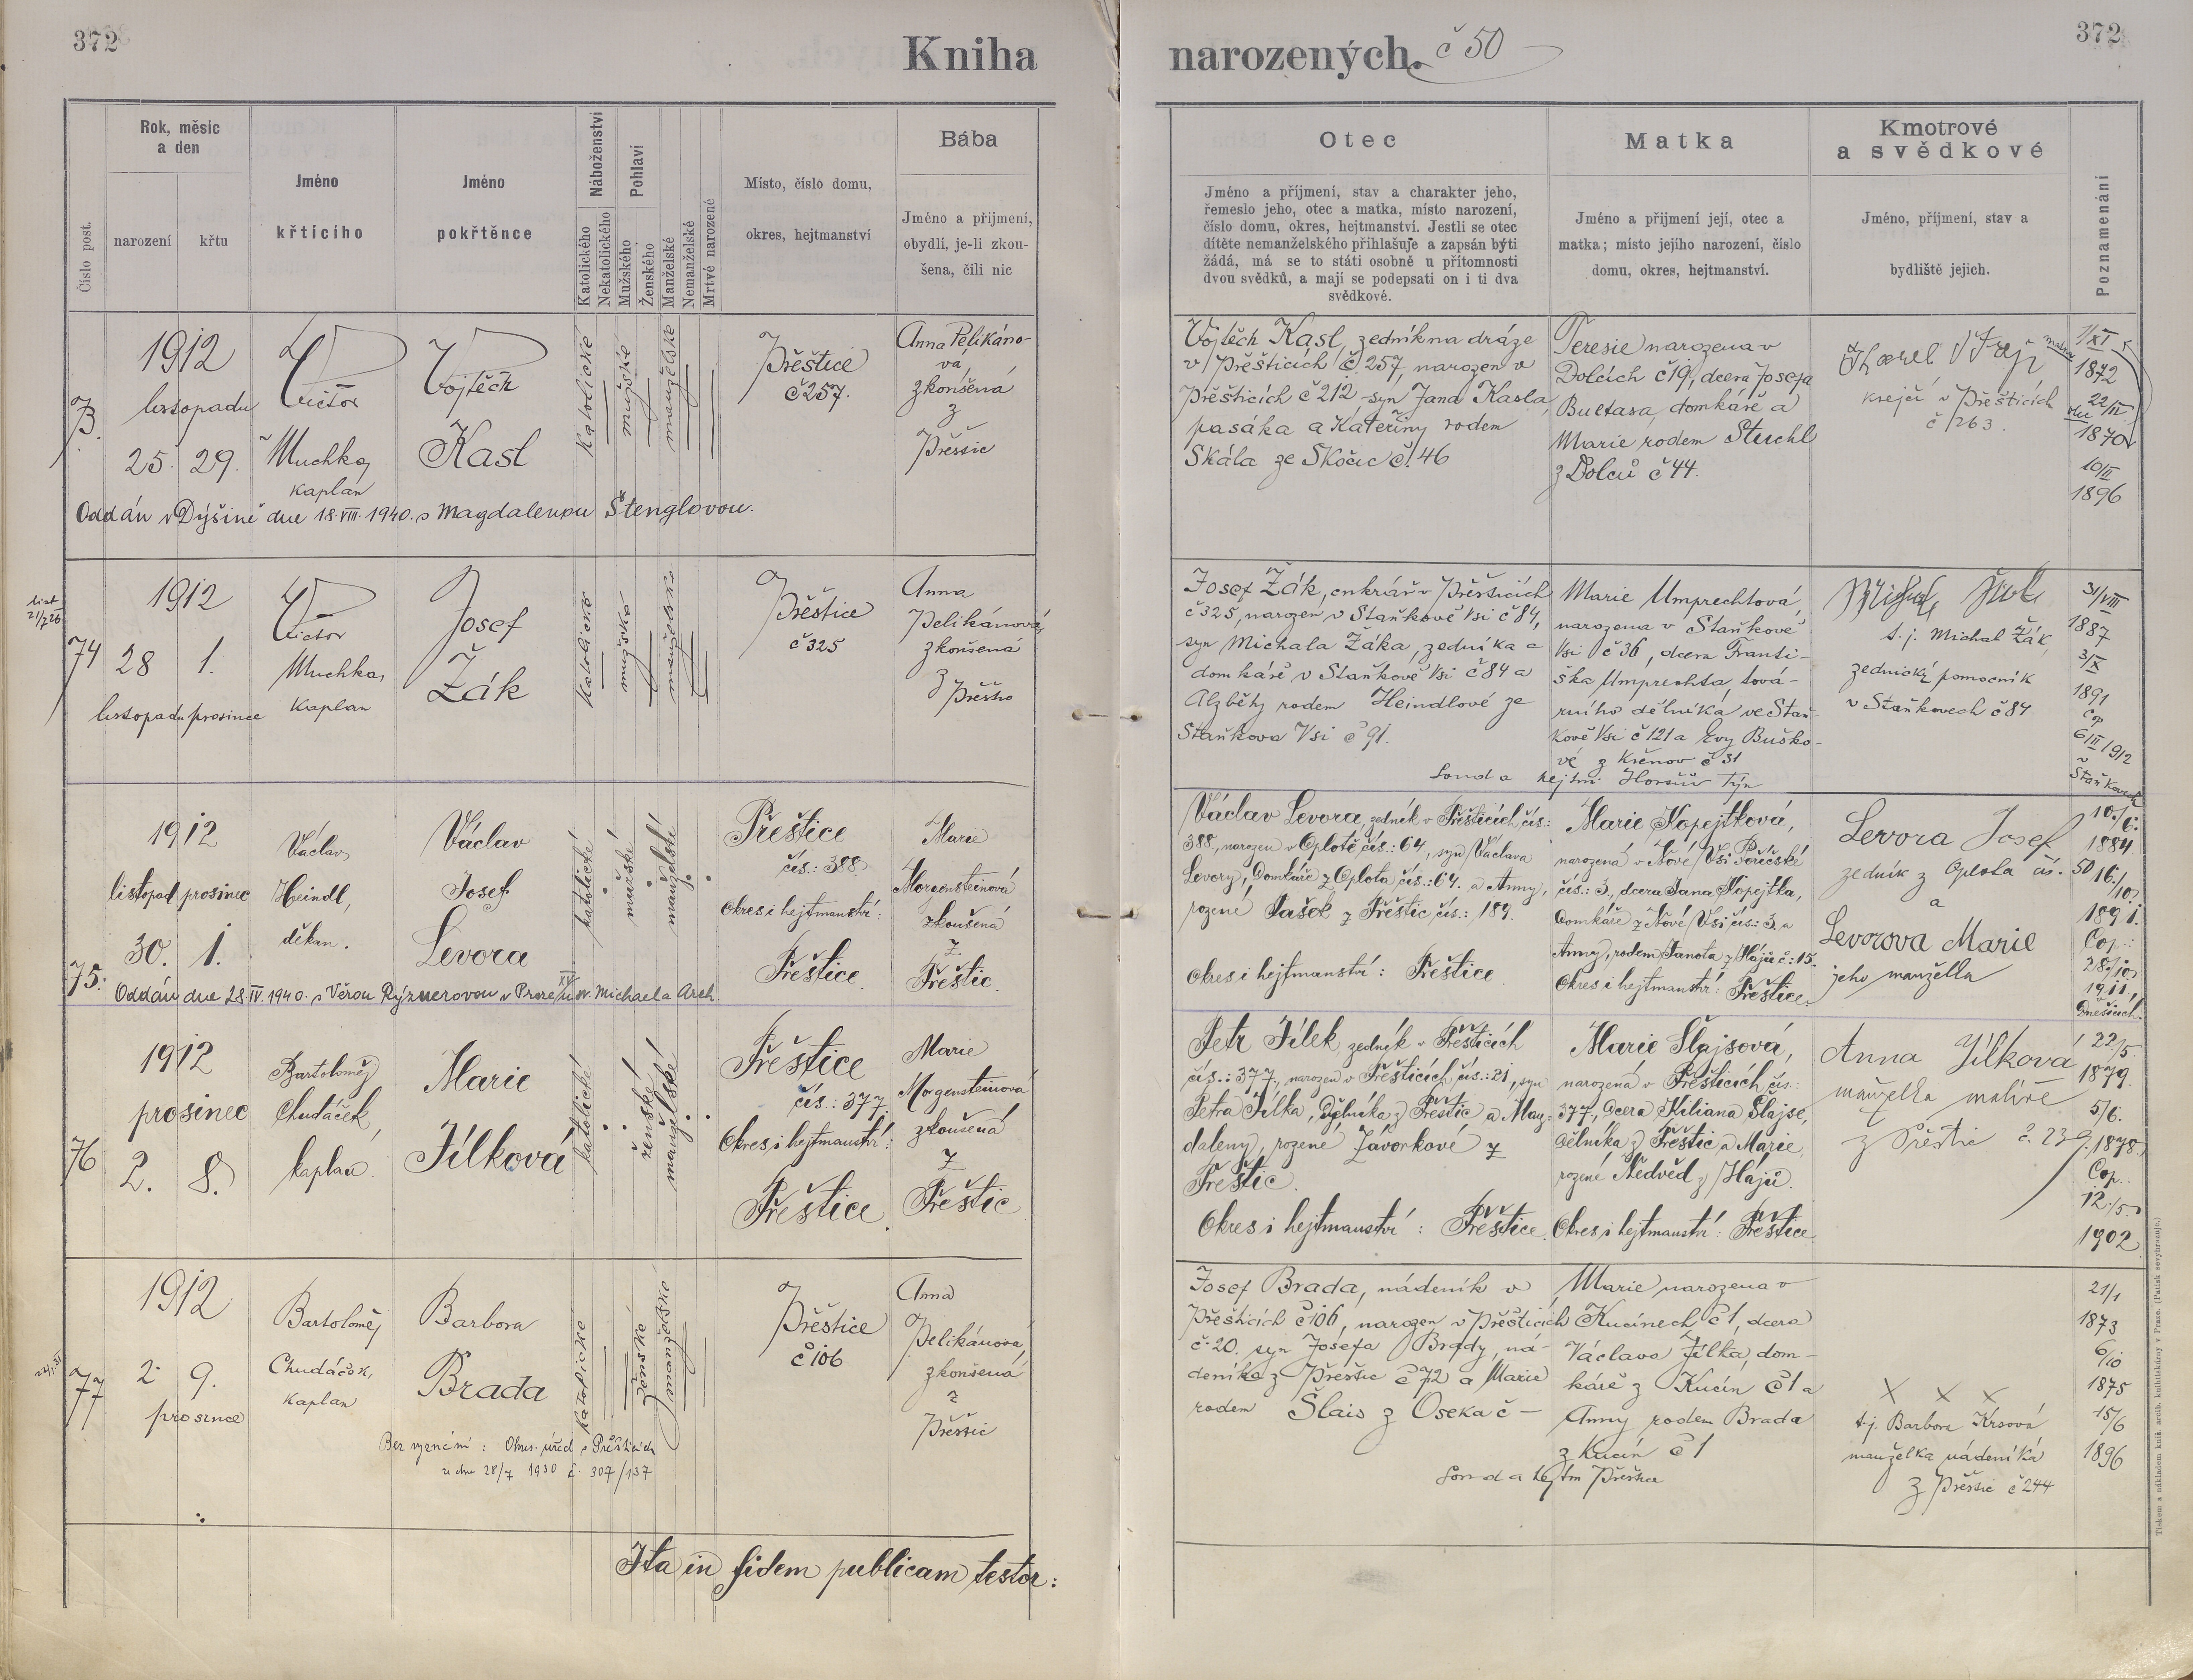 372
Kniha
narozených.
č 50
372
Číslo post.
Rok, měsíc
a den
narození
křtu
Jméno
křtícího
Jméno
pokřtěnce
Náboženství
Katolického
Nekatolického
Pohlaví
Mužského
Ženského
Manželské
Nemanželské
Mrtvé narozené
Místo, číslo domu,
okres, hejtmanství
Bába
Jméno a příjmení,
obydlí, je-li zkou-
šena, čili nic
Otec
Jméno a příjmení, stav a charakter jeho,
řemeslo jeho, otec a matka, místo narození,
číslo domu, okres, hejtmanství. Jestli se otec
dítěte nemanželského přihlašuje a zapsán býti
žádá, má se to státi osobně u přítomnosti
dvou svědků, a mají se podepsati on i ti dva
svědkové.
Matka
Jméno a příjmení její, otec a
matka; místo jejího narození, číslo
domu, okres, hejtmanství.
Kmotrové
a svědkové
Jméno, příjmení, stav a
bydliště jejich.
Poznamenání
73.
1912
listopadu
25. 29.
Victor
Muchka,
kaplan
Vojtěch
Kasl
Katolické
mužské
manželské
Přěštice
č 257.
Anna Pelikáno-
vá
zkoušená
z
Přěštic
Oddán v Dýšině dne 18.VIII. 1940. s Magdalenou Štenglovou.
Vojtěch Kasl, zedník na dráze
v Přěšticích č. 257, narozen v
Přěšticích č 212 syn Jana Kasla,
pasáka a Kateřiny rodem
Skála ze Skočic č. 46
Teresie narozena v
Dolcích č 19, dcera Josefa
Bultasa, domkáře a
Marie rodem Stuchl
z Dolců č 44.
Karel
krejčí v Přěšticích
č 263.
1/XI
1872
22/IV
1870
10/II
1896
list
21/7 26
74
1912
28 1.
listopadu prosince
Victor
Muchka,
kaplan
Josef
Žák
Katolické
mužské
manželské
Přěštice
č 325
Anna
Pelikánová,
zkoušená
z
Josef Žák, cukrář v Přěšticích
č 325, narozen v Staňkově Vsi č 84,
syn Michala Žáka, zedníka a
domkáře v Staňkově Vsi č 84 a
Alžběty rodem Heindlové ze
Staňkova Vsi č 91.
Marie Umprechtová,
narozena v Staňkově
Vsi č 36, dcera Franti-
ška Umprechta, tová-
rního dělníka ve Staň-
kově Vsi č 121 a Evy Buško-
vé z Křenov č 31
hejtm. Horšův Týn
Michal
t. j. Michal Žák,
zednický pomocník
v Staňkovech č 84
31/VIII
1887
3/X
1891
Cop
6/II 1912
v
Staňkovech
75.
1912
listopad prosinec
30. 1.
Václav
Heindl,
děkan.
Václav
Josef
Levora
katolické
mužské
manželské
Přeštice
čís.: 388.
Okres i hejtmanství:
Přeštice.
Marie
Morgensteinová
zkoušená
z
Přeštic.
Oddán dne 28.IV. 1940. s Věrou Rýznerovou v Praze u sv. Michaela Arch.
Václav Levora, zedník v Přešticích čís.:
388, narozen v Oplotě čís.: 64, syn Václava
Levory, Domkáře z Oplota čís.: 64. a Anny,
rozené Pašek z Přeštic čís.: 189.
Okres i hejtmanství: Přeštice.
Marie Kopejtková,
narozená v Nové Vsi Poříčské
čís.: 3, dcera Jana Kopejtka,
Domkáře z Nové Vsi čís.: 3. a
Anny, rodem Janota z Hájů č.: 15.
Okres i hejtmanství: Přeštice.
Levora Josef
zedník z Oplota čís. 50
a
Levorova Marie
jeho manželka
10./6.
1884
16./10.
1891.
Cop.:
28./10.
1911,
76
1912
prosinec
2. 8.
Bartoloměj
Chudáček,
kaplan.
Marie
Jílková
katolické
ženské
manželské
Přeštice
čís.: 377.
Okres i hejtmanství:
Přeštice.
Marie
Morgensteinová
zkoušená
z
Přeštic
Petr Jílek, zedník v Přešticích
čís.: 377, narozen v Přešticích čís.: 21, syn
Petra Jílka, Dělníka z Přeštic a Mag-
daleny, rozené Závorkové z
Přeštic.
Okres i hejtmanství: Přeštice.
Marie Šlajsová,
narozená v Přešticích čís.:
377, dcera Kiliana Šlajse,
dělníka z Přeštic a Marie,
rozené Nedvěd z Hájů.
Okres i hejtmanství: Přeštice.
Anna Jílková
manželka malíře
z Přěštic č. 239.
22/5.
1879.
5/6.
1878.
Cop.:
12./5.
1902.
77
1912
2 9.
prosince
Bartoloměj
Chudáček,
kaplan
Barbora
Brada
katolické
ženské
manželské
Přěštice
č 106
Anna
Pelikánová,
zkoušená
z
Přěštic
Bez vyznání: Okres. úřad v Přěšticích
ze dne 28/7 1930 č. 307/137
Josef Brada, nádeník v
Přěšticích č 106, narozen v Přěšticích
č. 20. syn Josefa Brady, ná-
deníka z Přěštic č 72 a Marie
rodem Šlais z Oseka č —
Marie narozena v
Kucínech č 1, dcera
Václava Jílka, dom-
káře z Kucín č 1 a
Anny rodem Brada
z Kucín č 1
x x x
t. j. Barbora Krsová
manželka nádeníka
z Přěštic č 244
21/1
1873
6/10
1875
15/6
1896
Ita in fidem publicam testor:
Tiskem a nákladem kníž. arcib. knihtiskárny v Praze. (Patisk nevyhrazuje.)